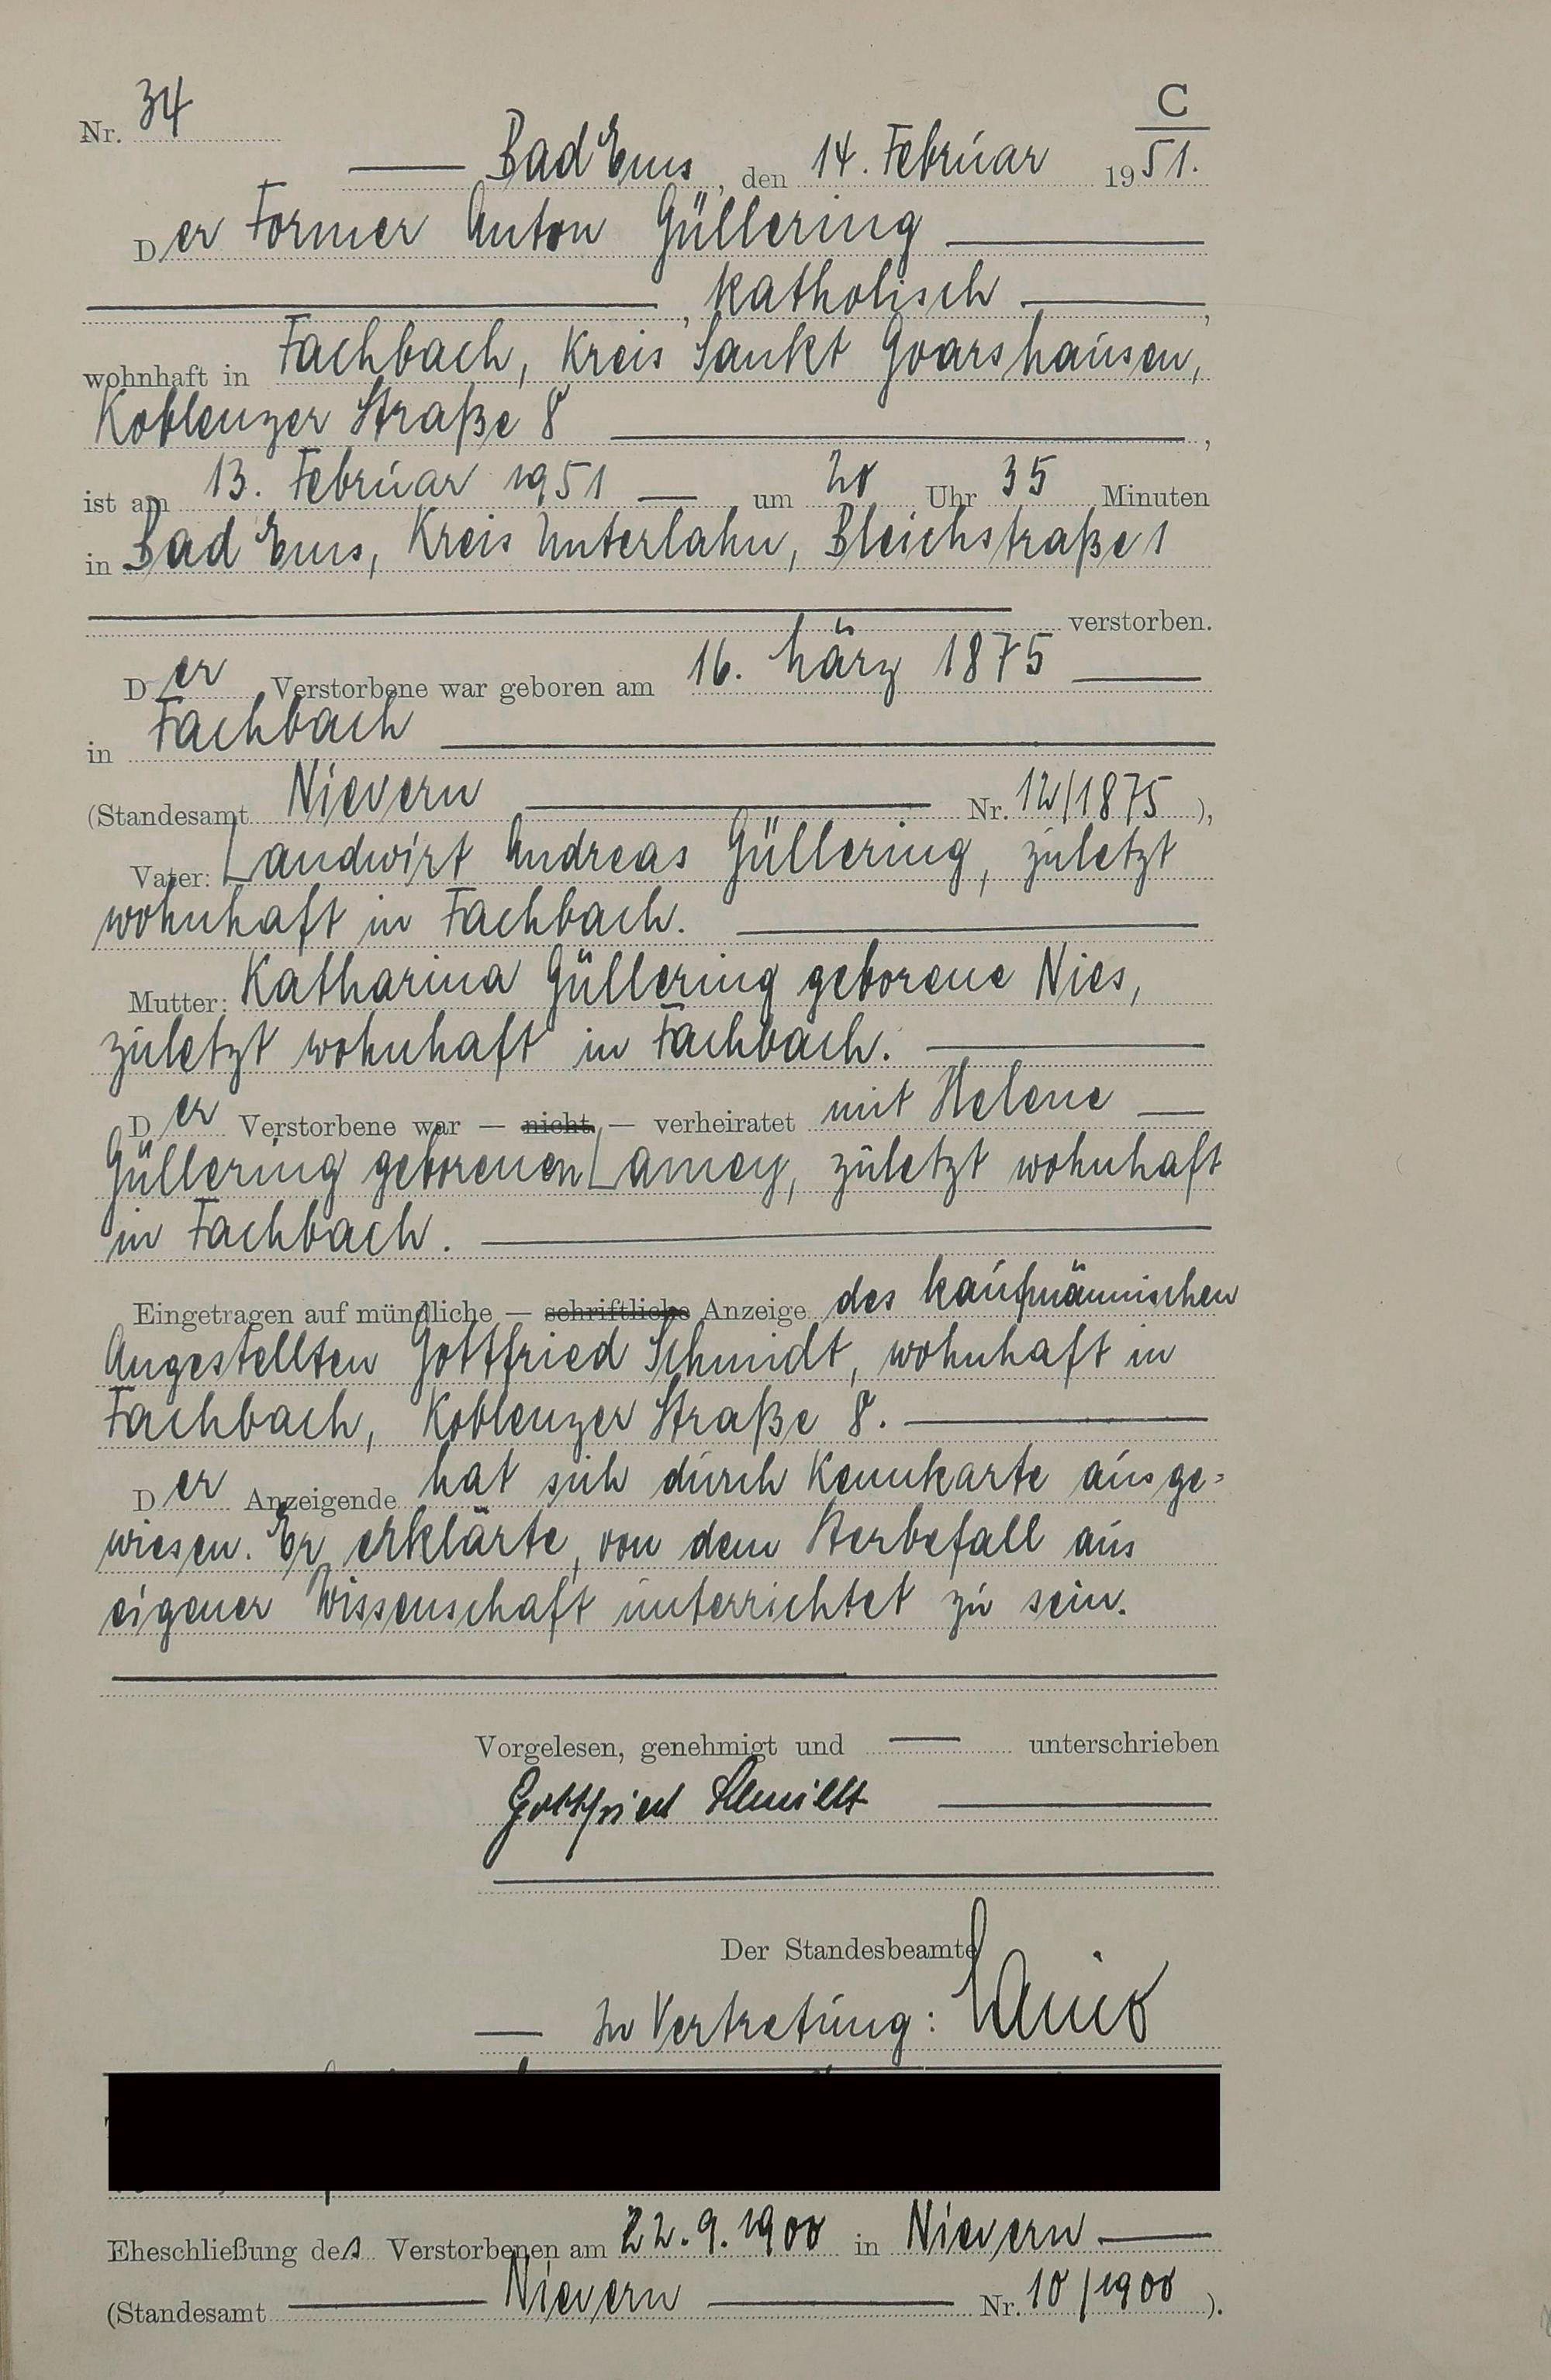 C
Nr. 34
Bad Ems, den 14. Februar 1951.
Der Former Anton Güllering
, katholisch,
wohnhaft in Fachbach, Kreis Sankt Goarshausen,
Koblenzer Straße 8,
ist am 13. Februar 1951 um 20 Uhr 35 Minuten
in Bad Ems, Kreis Unterlahn, Bleichstraße 1
verstorben.
Der Verstorbene war geboren am 16. März 1875
in Fachbach
(Standesamt Nievern Nr. 12/1875),
Vater: Landwirt Andreas Güllering, zuletzt
wohnhaft in Fachbach.
Mutter: Katharina Güllering geborene Nies,
zuletzt wohnhaft in Fachbach.
Der Verstorbene war — nicht — verheiratet mit Helene
Güllering geborenen Lamey, zuletzt wohnhaft
in Fachbach.
Eingetragen auf mündliche — schriftliche Anzeige des kaufmännischen
Angestellten Gottfried Schmidt, wohnhaft in
Fachbach, Koblenzer Straße 8.
Der Anzeigende hat sich durch Kennkarte ausge-
wiesen. Er erklärte, von dem Sterbefall aus
eigener Wissenschaft unterrichtet zu sein.
Vorgelesen, genehmigt und unterschrieben
Gottfried Schmidt
Der Standesbeamte
In Vertretung:
Eheschließung des Verstorbenen am 22.9.1900 in Nievern
(Standesamt Nievern Nr. 10/1900).